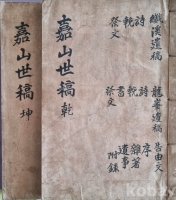 嘉山世稿 坤
嘉山世稿 乾
遺稿
詩
輓
祭文
龍峯遺稿
詩
輓
書
祭文
告由文
序
雜著
遺事
附錄
kobay